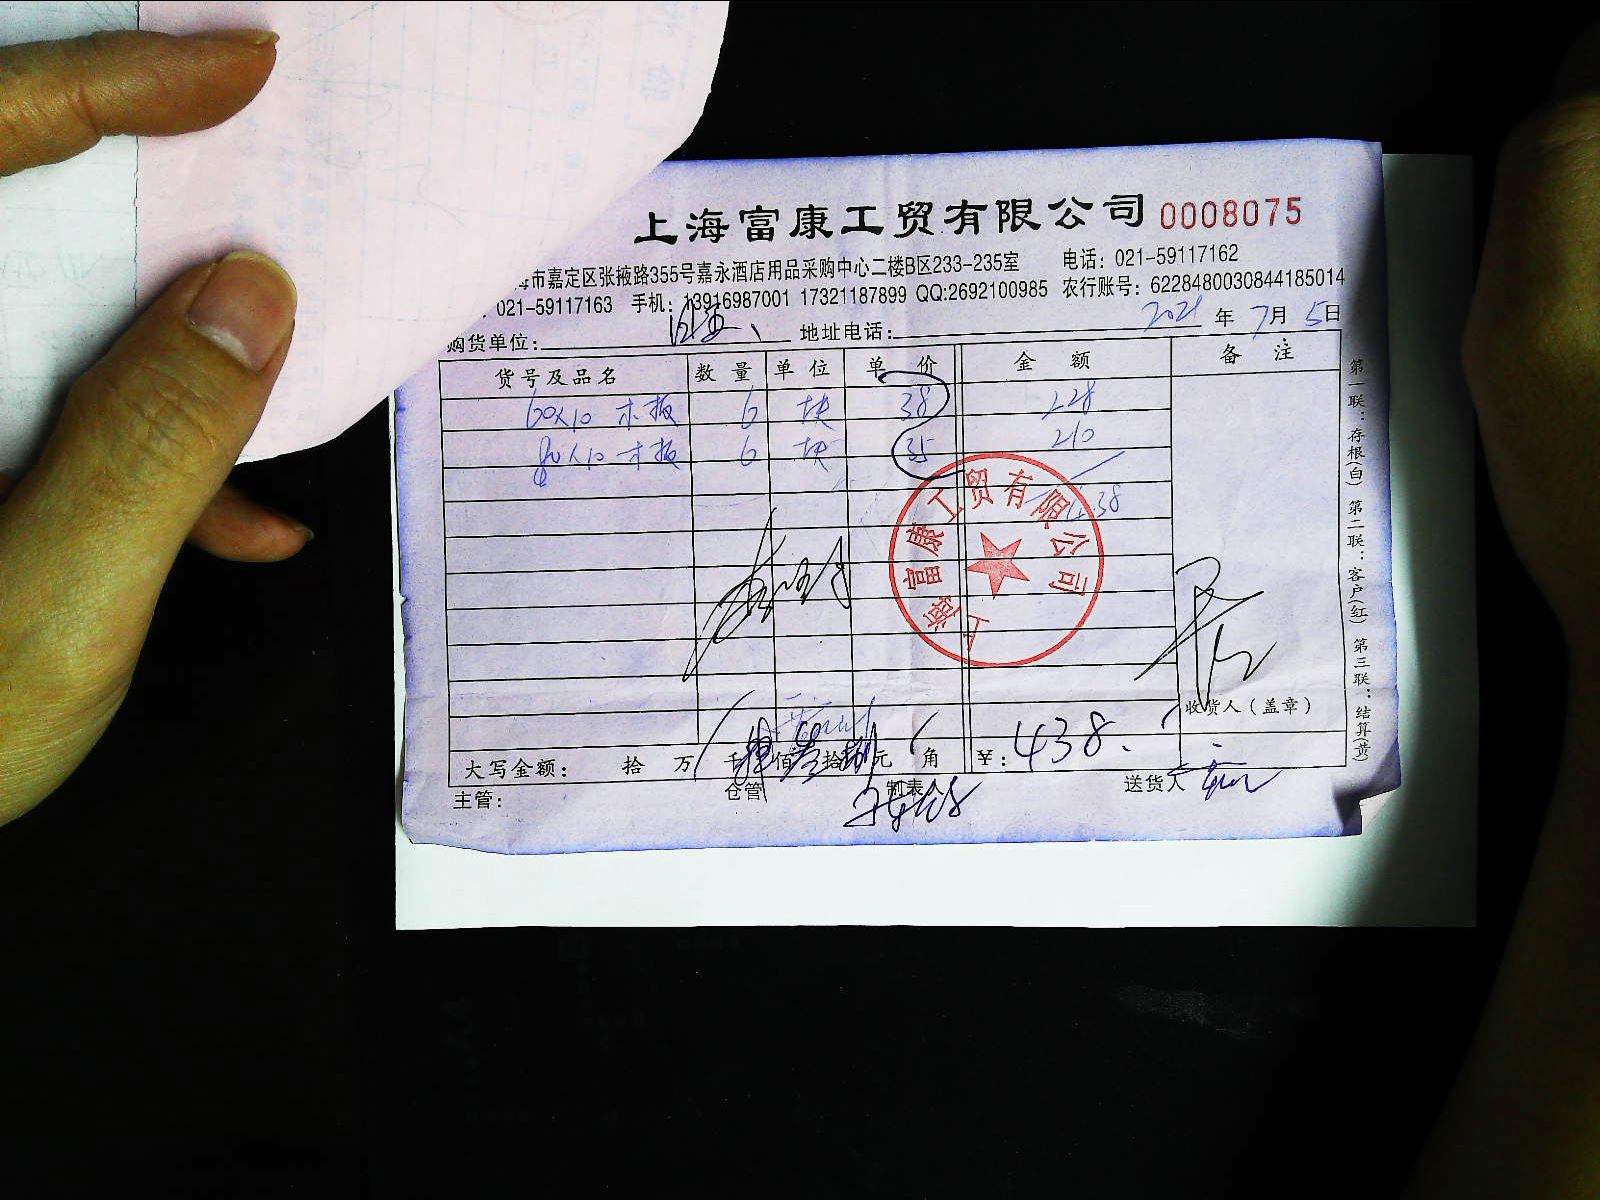 上海富康工贸有限公司 0008075
海市嘉定区张掖路355号嘉永酒店用品采购中心二楼B区233-235室 电话：021-59117162
：021-59117163 手机：13916987001 17321187899 QQ:2692100985 农行账号：6228480030844185014
购货单位： 地址电话： 2021年7月5日
货号及品名 数量 单位 单价 金额 备注
60×10 木板 6 块 38 228
80×10 木板 6 块 35 210
438
上海富康工贸有限公司
收货人（盖章）
大写金额： 拾 万 千 佰 拾 元 角 ¥：438.
主管： 仓管 制表人 送货人
第一联：存根(白) 第二联：客户(红) 第三联：结算(黄)